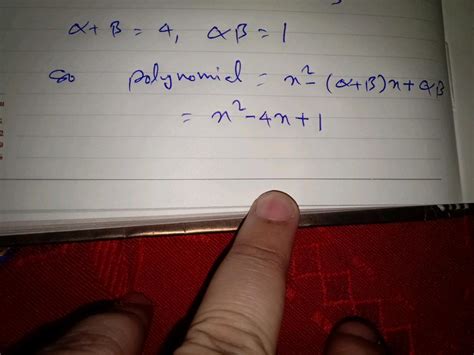 α+β = 4, αβ = 1
So polynomial = x²-(α+β)x+αβ
= x²-4x+1